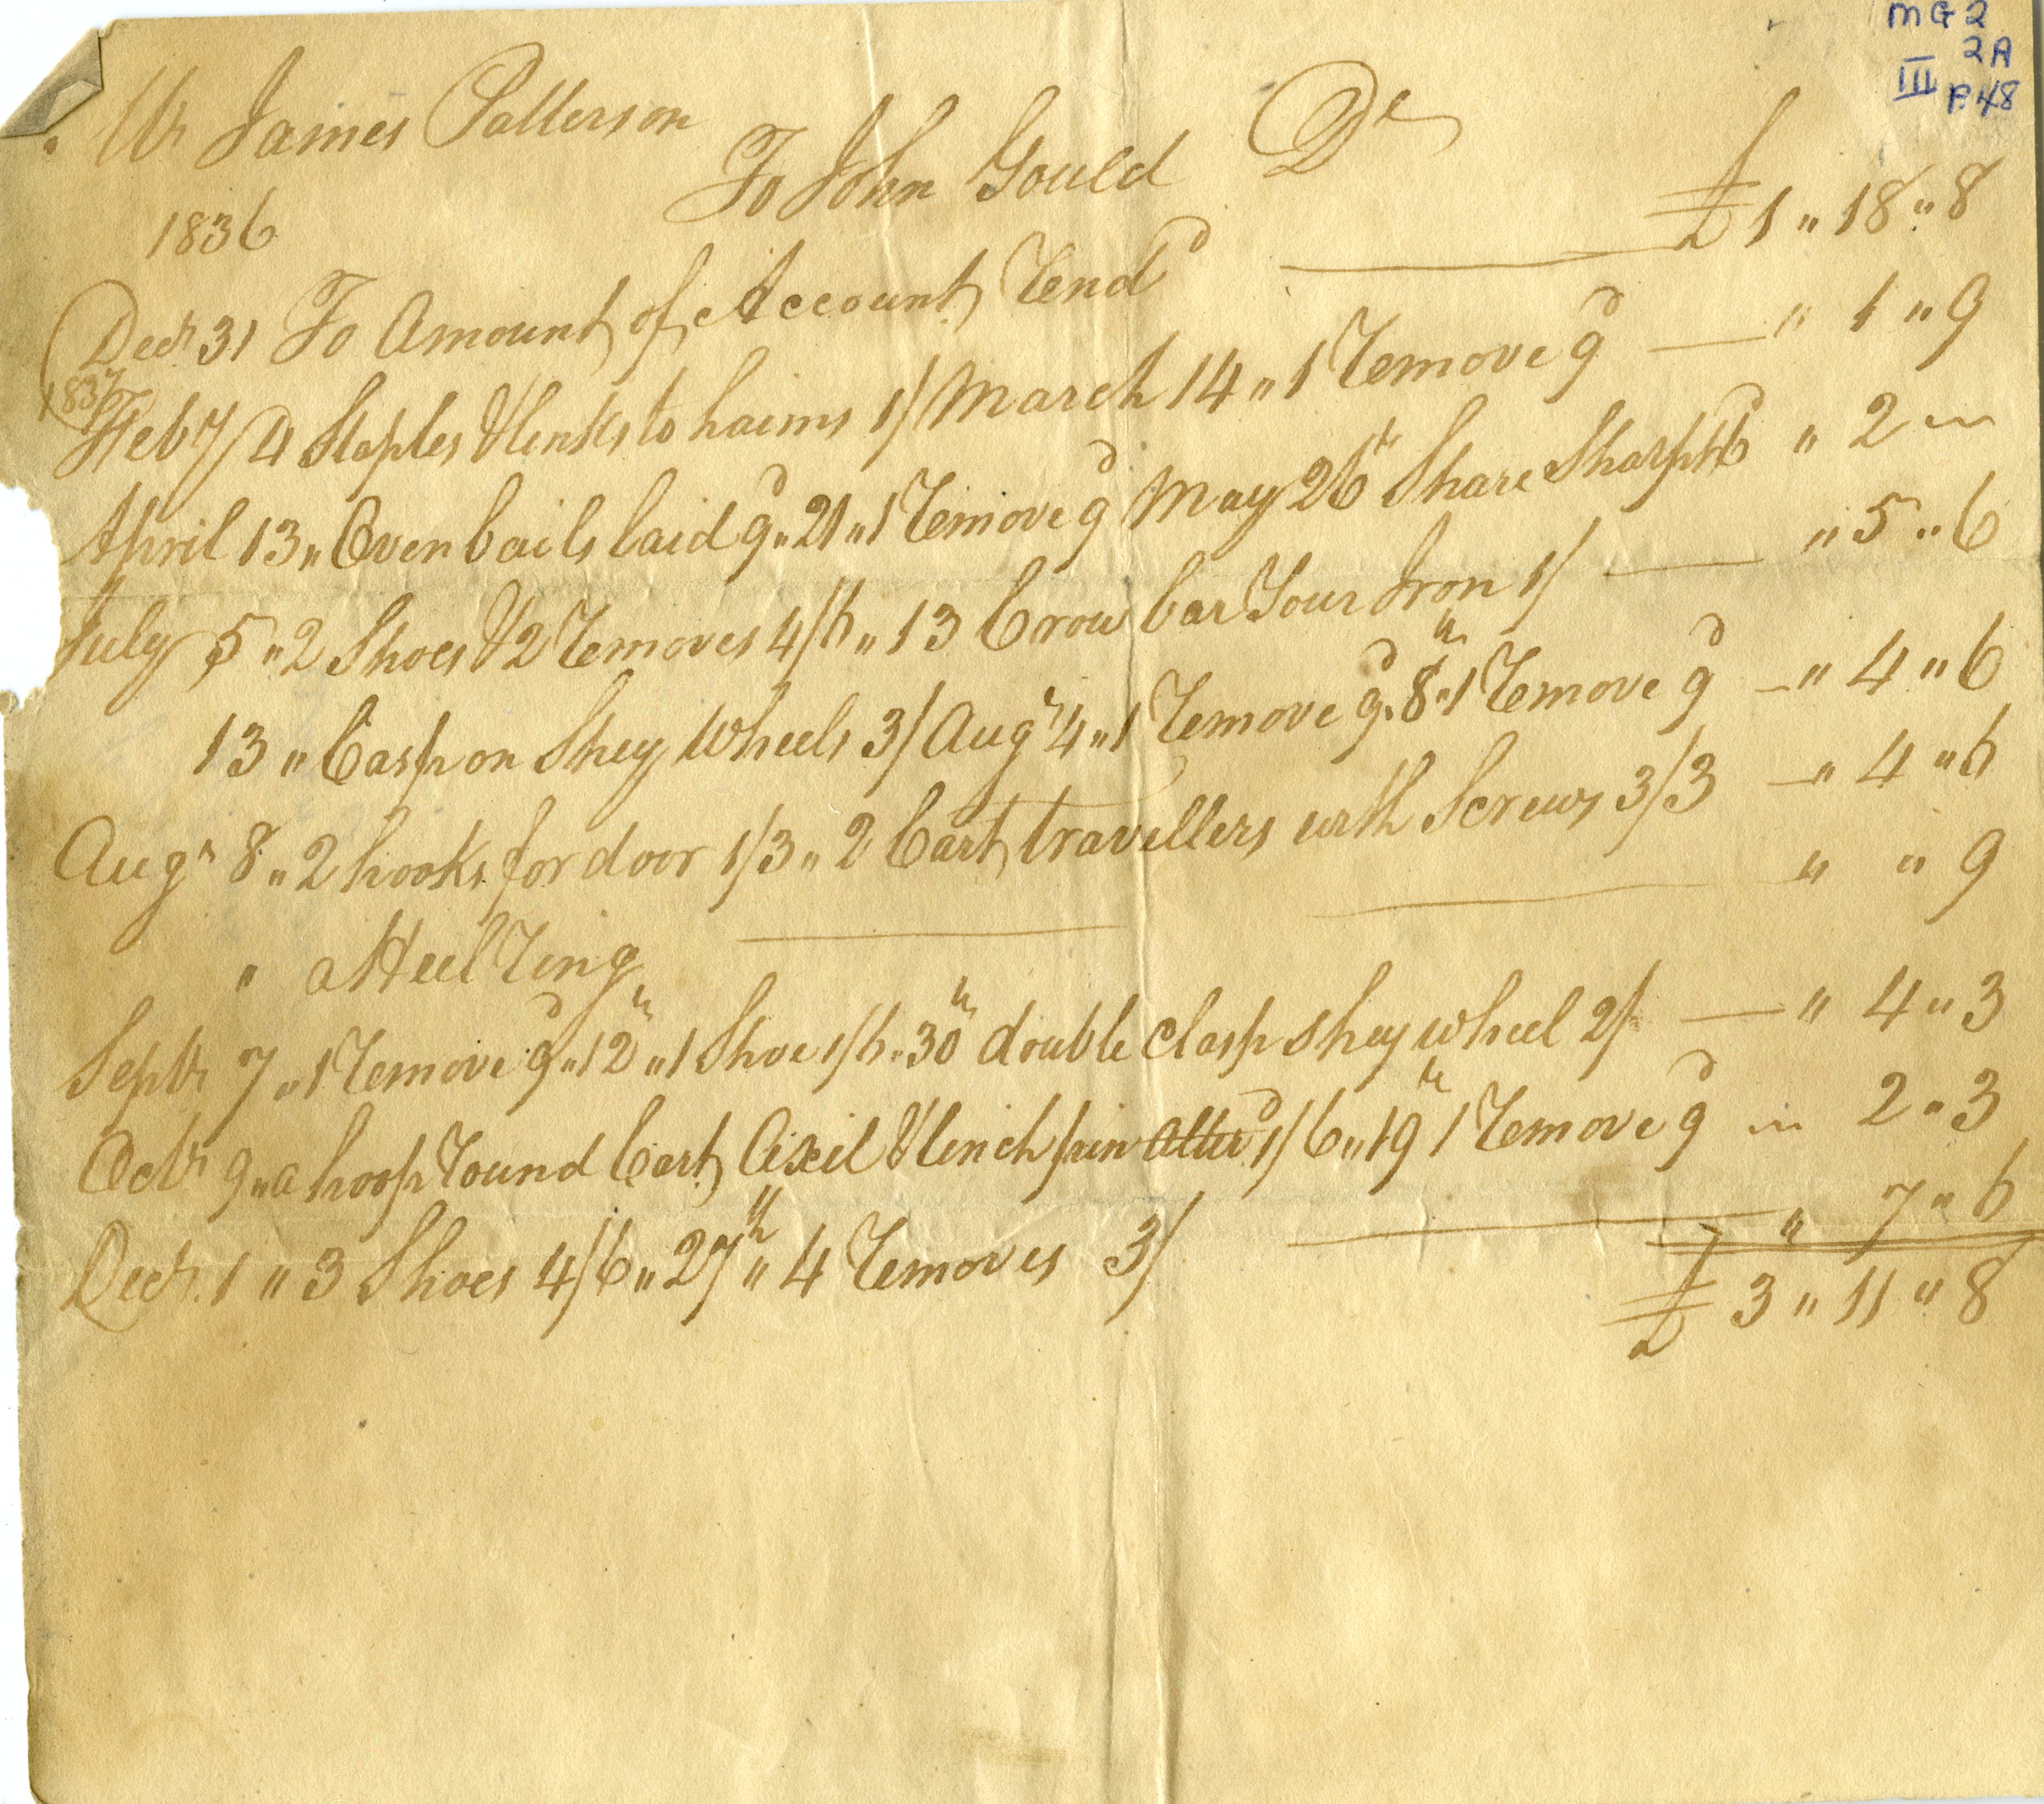 MG 2
2A
III P.48
Mr James Patterson
To John Gould Dr
1836
Decr 31 To Amount of Account rendd £ 1 " 18 " 8
1837
Feb 7 / 4 Staples & links to haims 1/ March 14 " 1 remove 9d " 1 " 9
April 13 " Oven bails laid 9d " 21 " 1 remove 9d May 26th Share Sharpd 6 " 2 "
July 5 " 2 Shoes & 2 removes 4/6 " 13 Crow bar your Iron 1/ " 5 " 6
13 " Casp on Shey Wheels 3/ Augt 4 " 1 remove 9d " 8th " 1 remove 9d " 4 " 6
Augt 8 " 2 hooks for door 1/3 " 2 Cart travellers with Screws 3/3 " 4 " 6
" a Heel ring " " 9
Septr 7 " 1 remove 9d " 12th " 1 Shoe 1/6 " 30th double Clasp Shey wheel 2/ " 4 " 3
Octr 9 " a hoop round Cart Axil & linch pin alterd 1/6 " 19th 1 remove 9d " 2 " 3
Decr 1 " 3 Shoes 4/6 " 27th " 4 removes 3/ " 7 " 6
£ 3 " 11 " 8